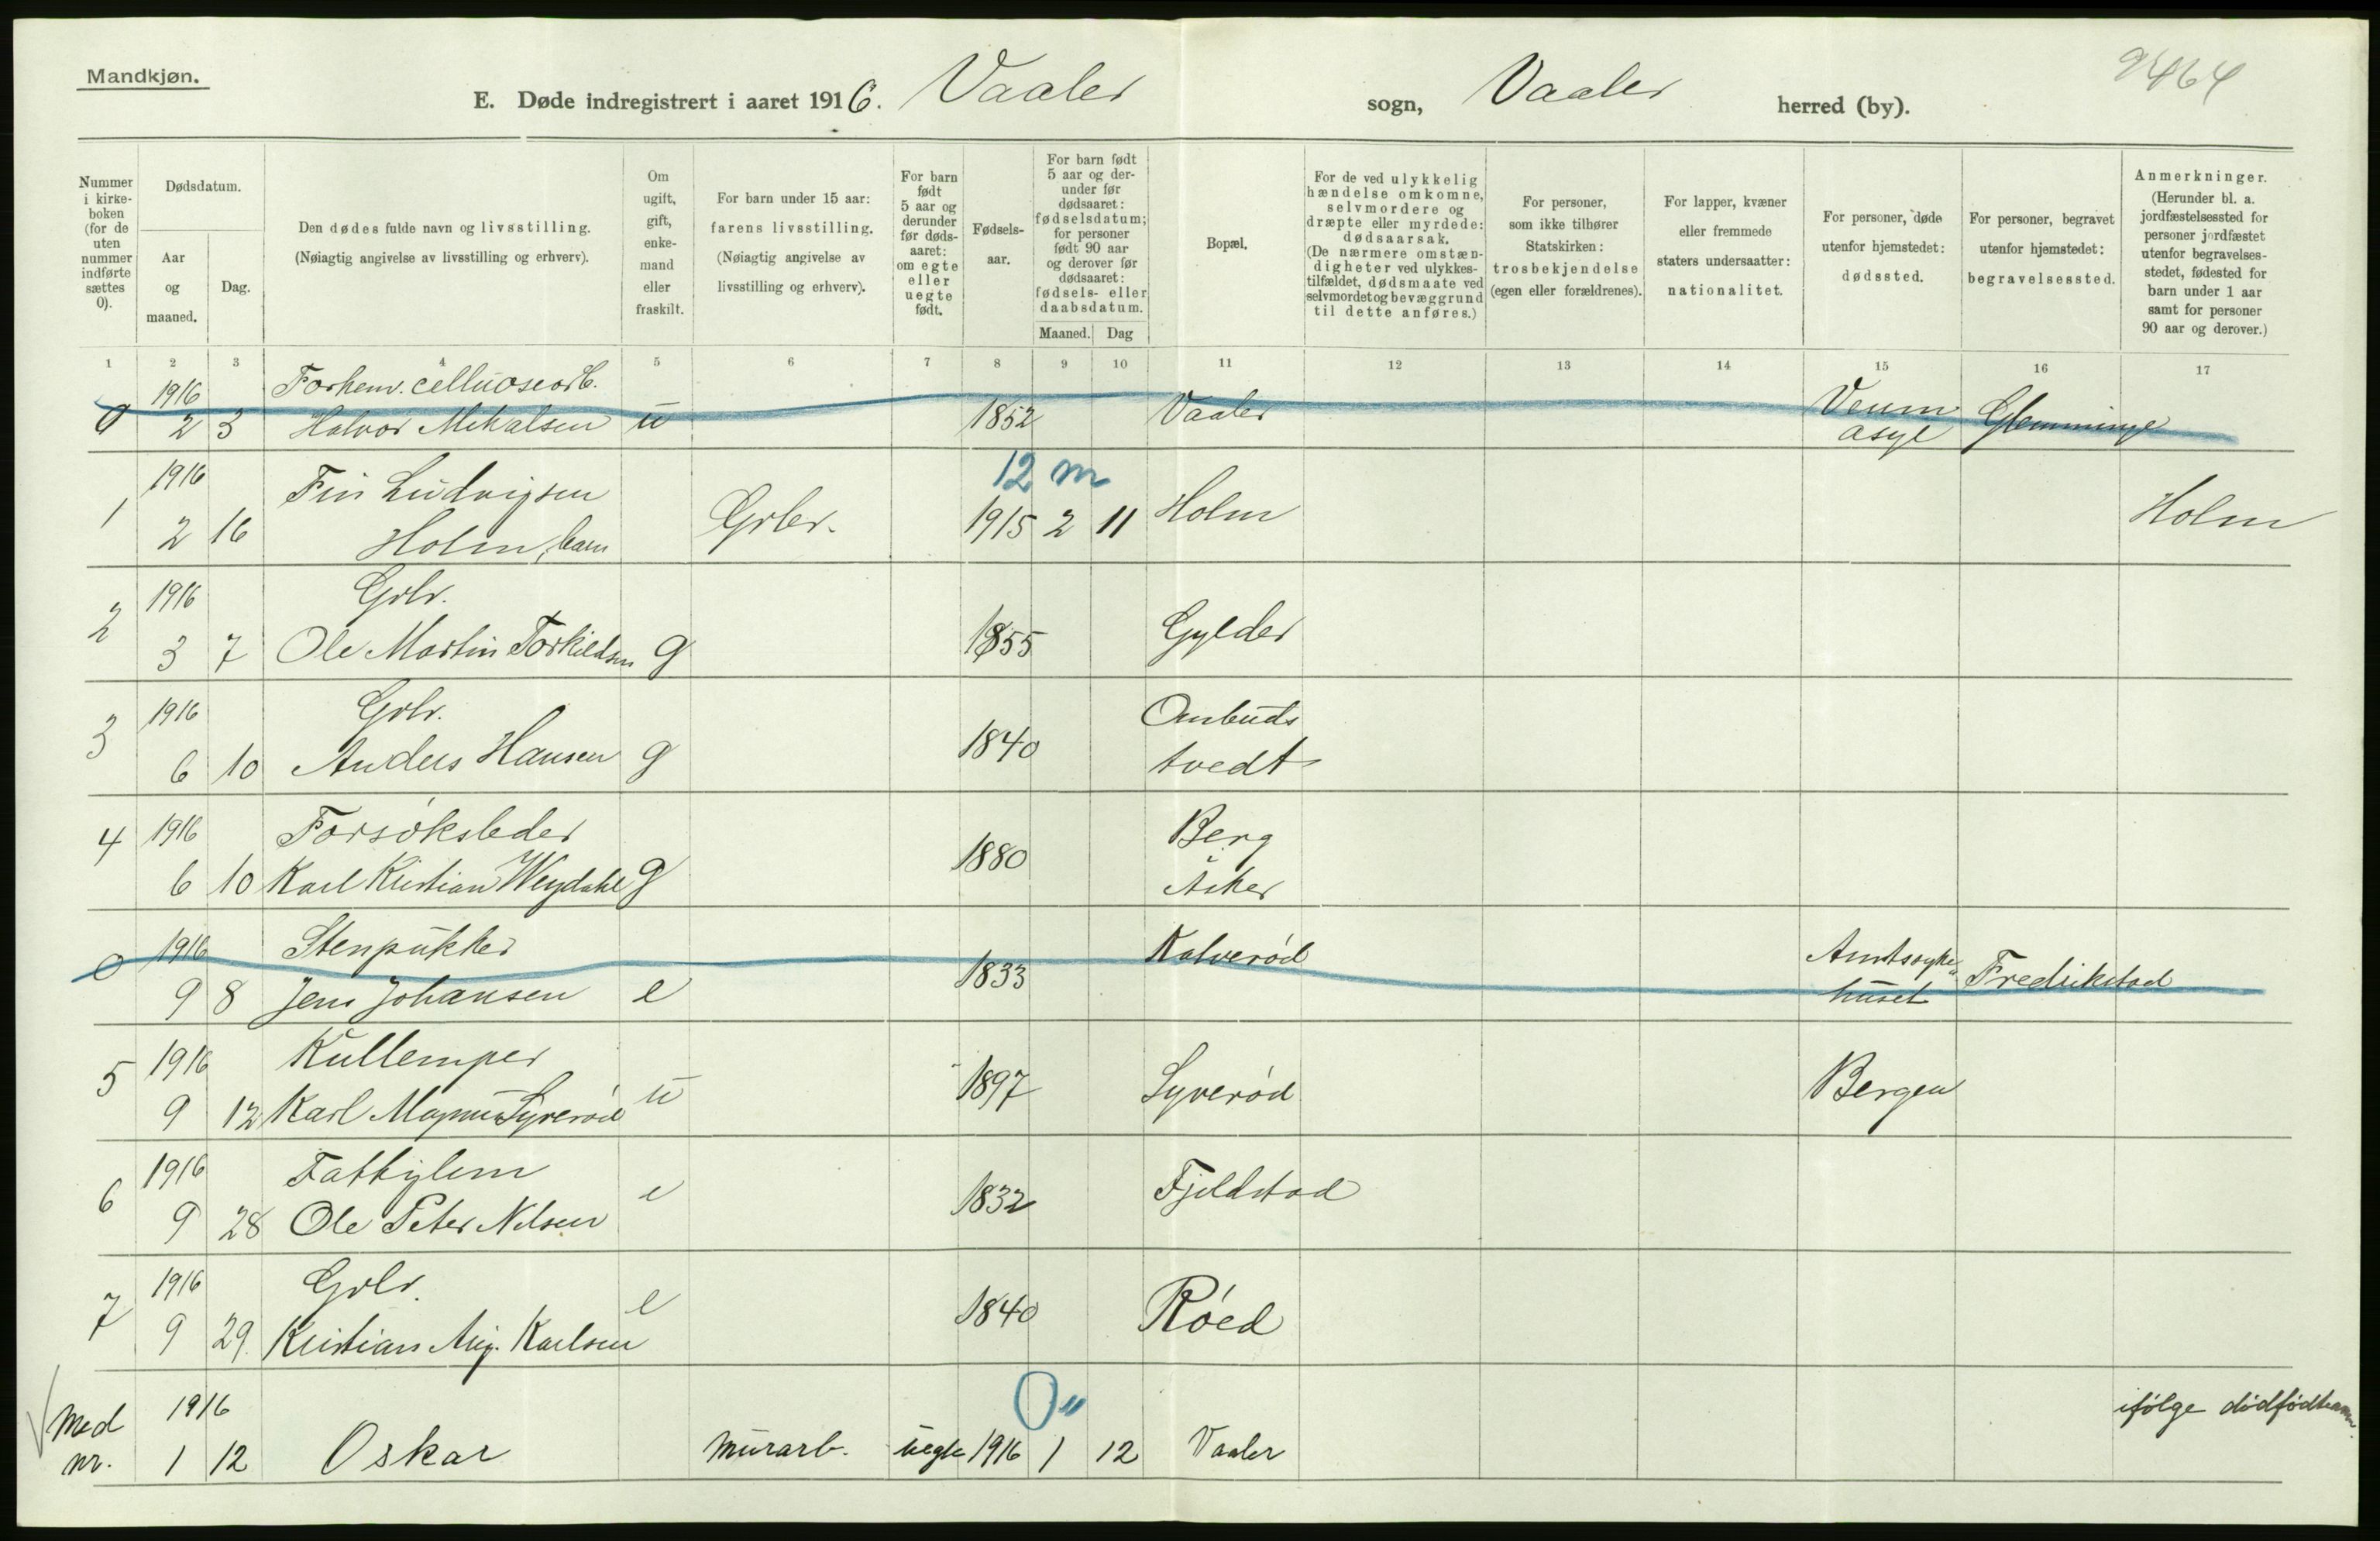 Mandkjøn.
9464
E. Døde indregistrert i aaret 1916. Vaaler sogn, Vaaler herred (by).
Nummer i kirkeboken (for de uten nummer indførte sættes 0).
Dødsdatum.
Aar og maaned.
Dag.
Den dødes fulde navn og livsstilling.
(Nøiagtig angivelse av livsstilling og erhverv).
Om ugift, gift, enkemand eller fraskilt.
For barn under 15 aar:
farens livsstilling.
(Nøiagtig angivelse av livsstilling og erhverv).
For barn født 5 aar og derunder før dødsaaret: om egte eller uegte født.
Fødselsaar.
For barn født 5 aar og derunder før dødsaaret: fødselsdatum; for personer født 90 aar og derover før dødsaaret: fødsels- eller daabsdatum.
Maaned. Dag
Bopæl.
For de ved ulykkelig hændelse omkomne, selvmordere og dræpte eller myrdede: dødsaarsak. (De nærmere omstændigheter ved ulykkestilfældet, dødsmaate ved selvmordet og bevæggrund til dette anføres.)
For personer, som ikke tilhører Statskirken: trosbekjendelse (egen eller forældrenes).
For lapper, kvæner eller fremmede staters undersaatter: nationalitet.
For personer, døde utenfor hjemstedet: dødssted.
For personer, begravet utenfor hjemstedet: begravelsessted.
Anmerkninger.
(Herunder bl. a. jordfæstelsessted for personer jordfæstet utenfor begravelsesstedet, fødested for barn under 1 aar samt for personer 90 aar og derover.)
1 2 3 4 5 6 7 8 9 10 11 12 13 14 15 16 17
1916 Forhenv. celluosearb. Veum
0 2 3 Halvor Mikalsen u 1852 Vaaler asyl Glemminge
1916 Fin Ludvigsen 12 m
1 2 16 Holm, barn Grbr. 1915 2 11 Holm Holm
1916 Grbr.
2 3 7 Ole Martin Torkildsen g 1855 Gylder
1916 Grbr. Ombuds
3 6 10 Anders Hansen g 1840 tvedt
4 1916 Forsøksleder Berg
6 10 Karl Kristian Weydahl g 1880 Aker
0 1916 Stenpukker Kalverød Amtssyke
9 8 Jens Johansen e 1833 huset Fredrikstad
5 1916 Kullemper
9 12 Karl Magnus Syverød u 1897 Syverød Bergen
6 1916 Fattiglem
9 28 Ole Peter Nilsen e 1832 Fjeldstad
7 1916 Grbr.
9 29. Kristian Aug. Karlsen e 1840 Róed
Med 1916 0 " ifølge dødfødtheten.
nr. 1 12 Oskar murarb. uegte 1916 1 12 Vaaler